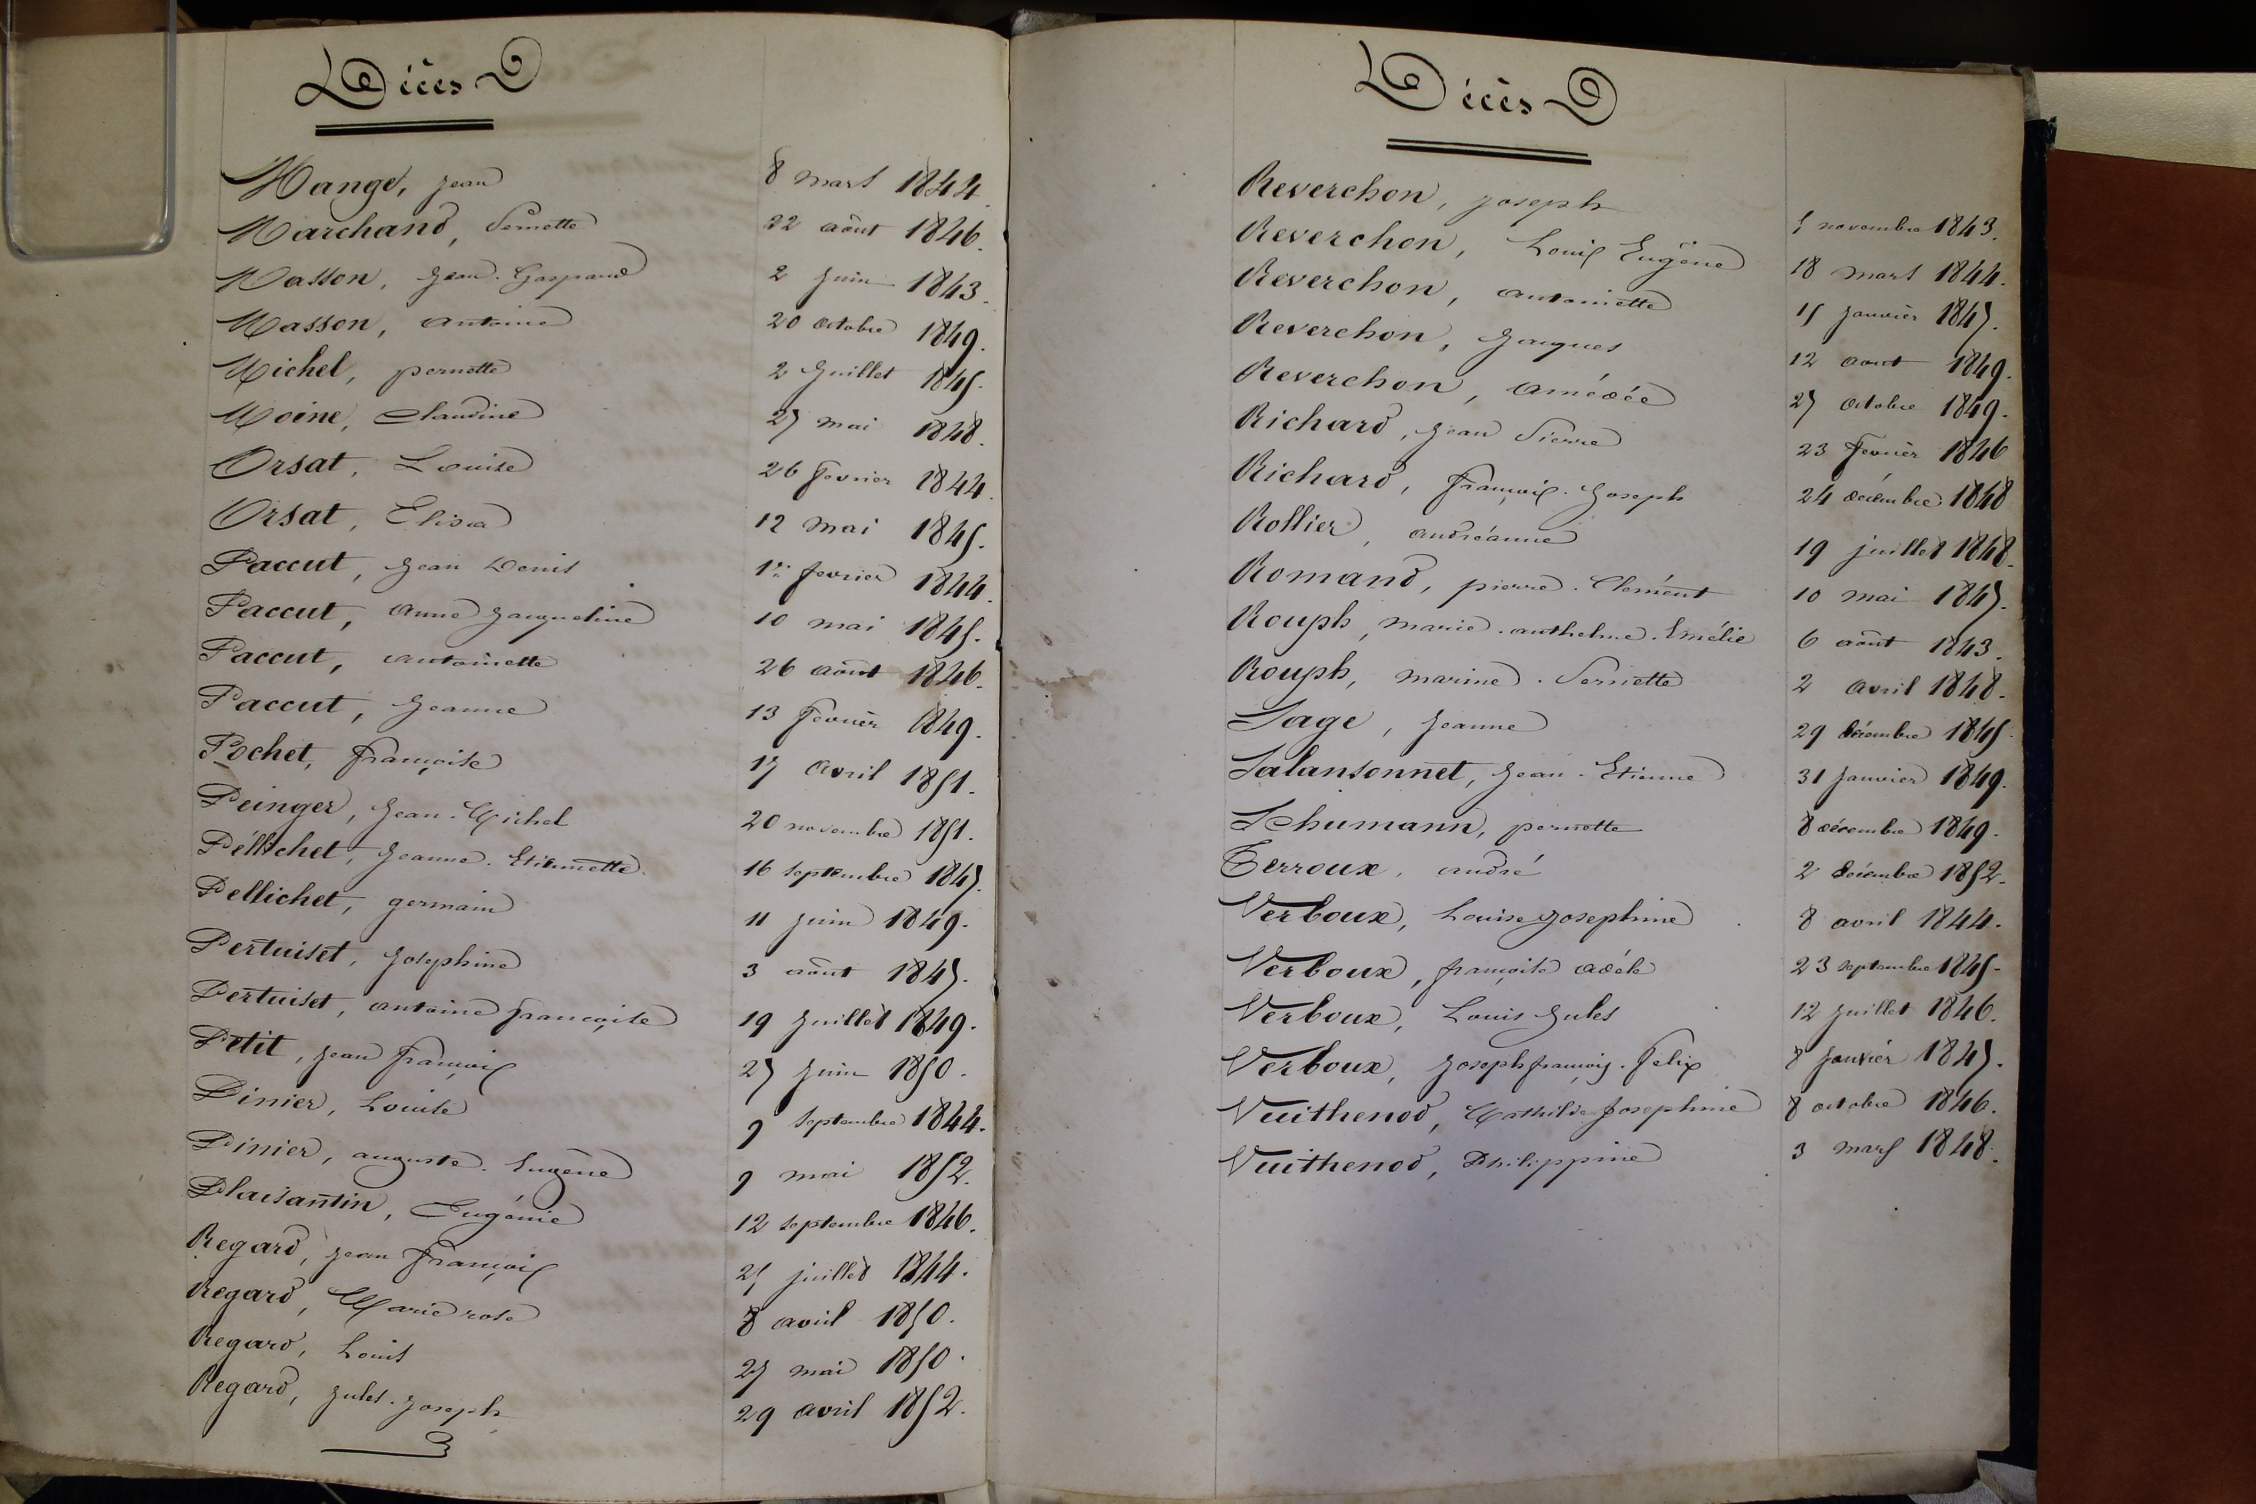 Décès
Mange, Jean 8 mars 1844.
Marchand, Pernette 22 août 1846.
Masson, Jean. Gaspard 2 Juin 1843.
Masson, Antoine 20 octobre 1849.
Michel, pernette 2 Juillet 1845.
Moine, Claudine 27 mai 1848.
Orsat, Louise 26 fevrier 1844.
Orsat, Elisa 12 mai 1845.
Paccut, Jean Denis 1er fevrier 1844.
Paccut, Anne Jacqueline 10 mai 1845.
Paccut, Antoinette 26 août 1846.
Paccut, Jeanne 13 Fevrier 1849.
Pochet, françoise 17 Avril 1851.
Peinger, Jean. Michel 20 novembre 1851.
Péllichet, Jeanne. Etiennette. 16 septembre 1847.
Pellichet, germain 11 Juin 1849.
Pertuiset, Josephine 3 août 1847.
Pertuiset, antoine françoise 19 Juillet 1849.
Petit, Jean françois 27 Juin 1850.
Pinier, Louise 9 septembre 1844.
Pinier, auguste. Eugène 9 mai 1852.
Plaisantin, Eugénie 12 septembre 1846.
Regard, Jean François 25 juillet 1844.
Regard, Marie rose 8 avril 1850.
Regard, Louis 27 mai 1850.
Regard, Jules. Joseph 29 avril 1852.
Décès
Reverchon, Joseph 5 novembre 1843.
Reverchon, Louis Eugène 18 mars 1844.
Reverchon, antoinette 15 Janvier 1847.
Reverchon, Jacques 12 aout 1849.
Reverchon, Amédée 27 octobre 1849.
Richard, Jean Pierre 23 Fevrier 1846
Richard, François. Joseph 24 décembre 1848
Rollier, andréanne 19 juillet 1848.
Romand, pierre. Clement 10 mai 1847.
Rouph, marie. anthelme. Emélie 6 août 1843.
Rouph, marine. Pernette 2 avril 1848.
Sage, Jeanne 29 décembre 1845.
Salansonnet, Jean. Etienne 31 Janvier 1849.
Schumann, pernette 8 décembre 1849.
Terroux, andré 2 décembre 1852.
Verboux, Louise Josephine 8 avril 1844.
Verboux, françoise adéle 23 septembre 1845.
Verboux, Louis Jules 12 Juillet 1846.
Verboux, Joseph françois. Felix 8 Janvier 1847.
Vuithenod, Mathilde Josephine 8 octobre 1846.
Vuithenod, Philippine 3 mars 1848.